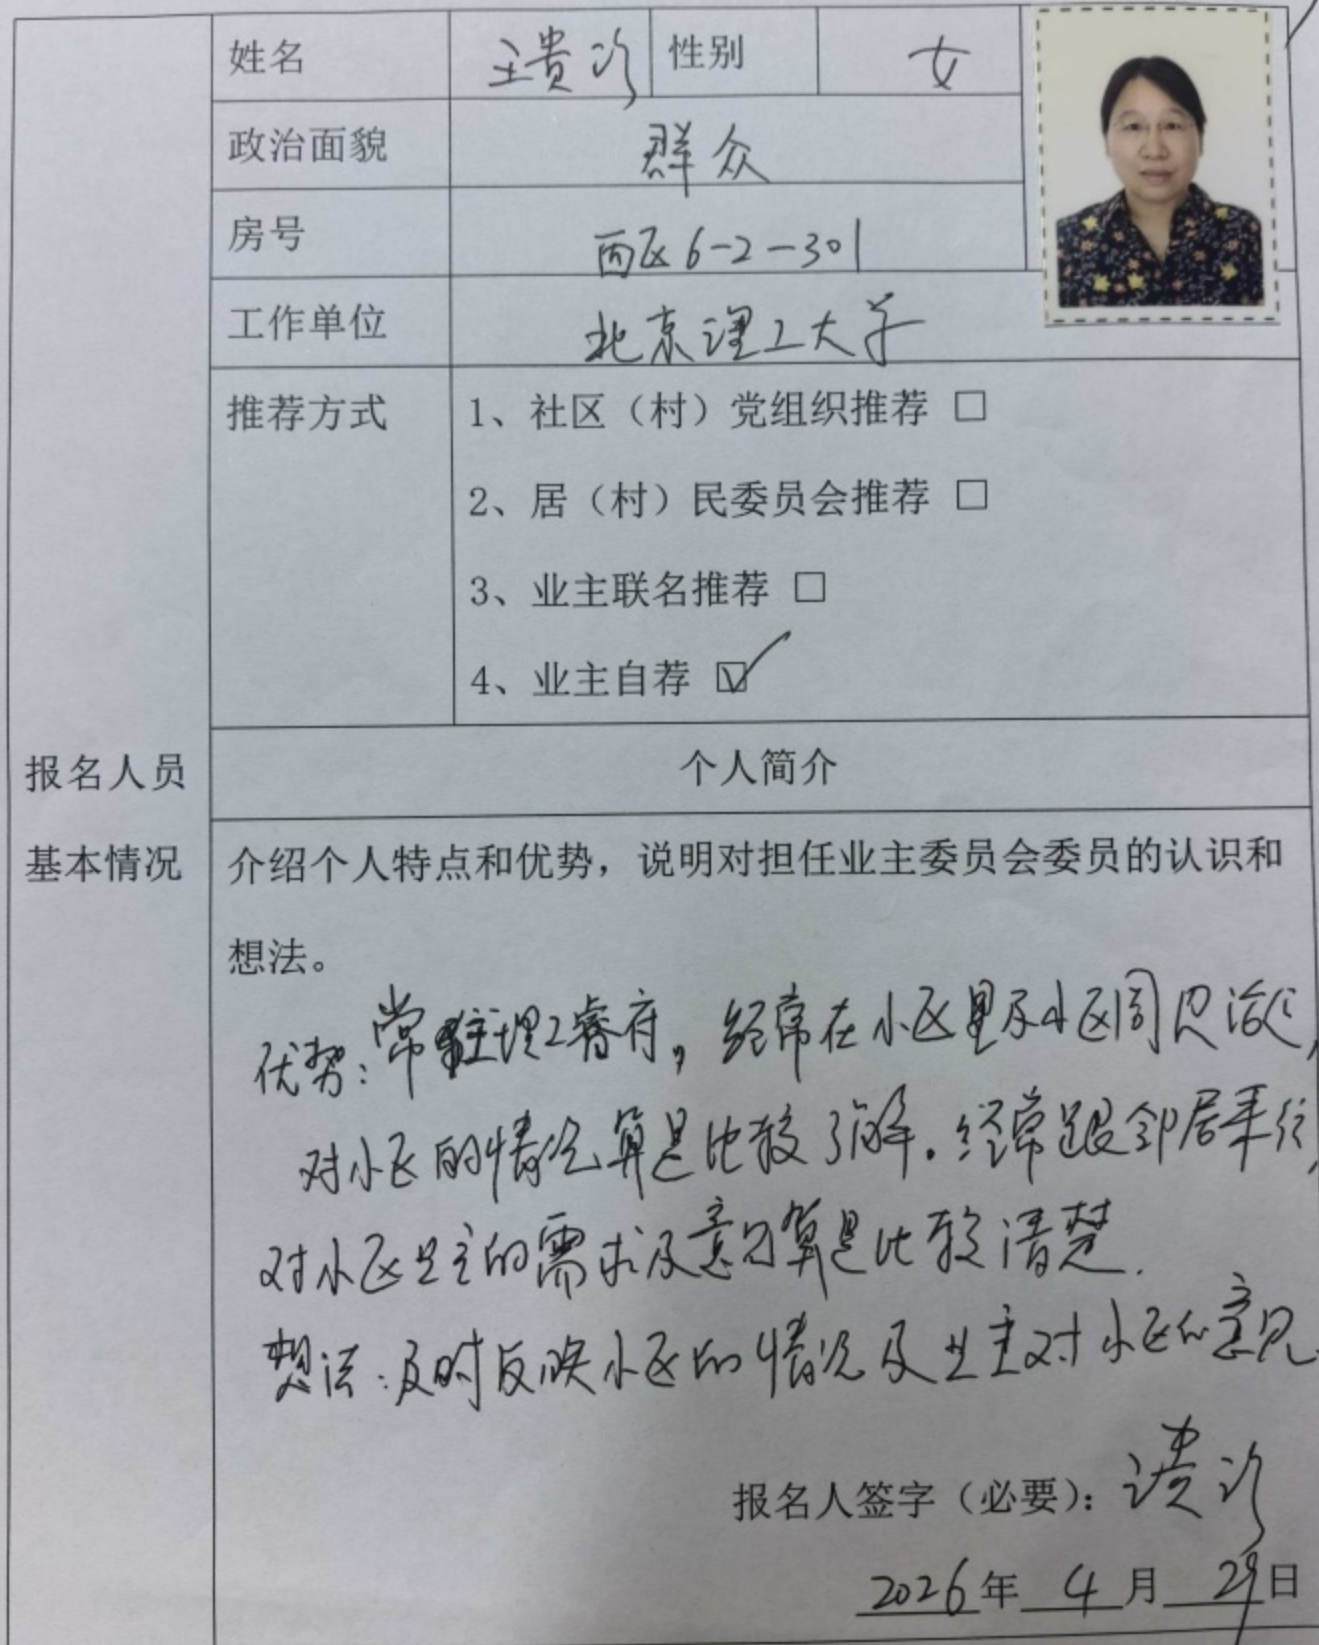 姓名 性别 女
政治面貌 群众
房号 西区6-2-301
工作单位 北京理工大学
推荐方式 1、社区（村）党组织推荐 □
2、居（村）民委员会推荐 □
3、业主联名推荐 □
4、业主自荐 ☑
报名人员
基本情况
个人简介
介绍个人特点和优势，说明对担任业主委员会委员的认识和
想法。
优势：常住理工睿府，经常在小区里及小区周边
对小区的情况算是比较了解。经常跟邻居来往，
对小区业主的需求及意见算是比较清楚.
想法：及时反映小区的情况及业主对小区的意见
报名人签字（必要）：
2026年 4月 29日